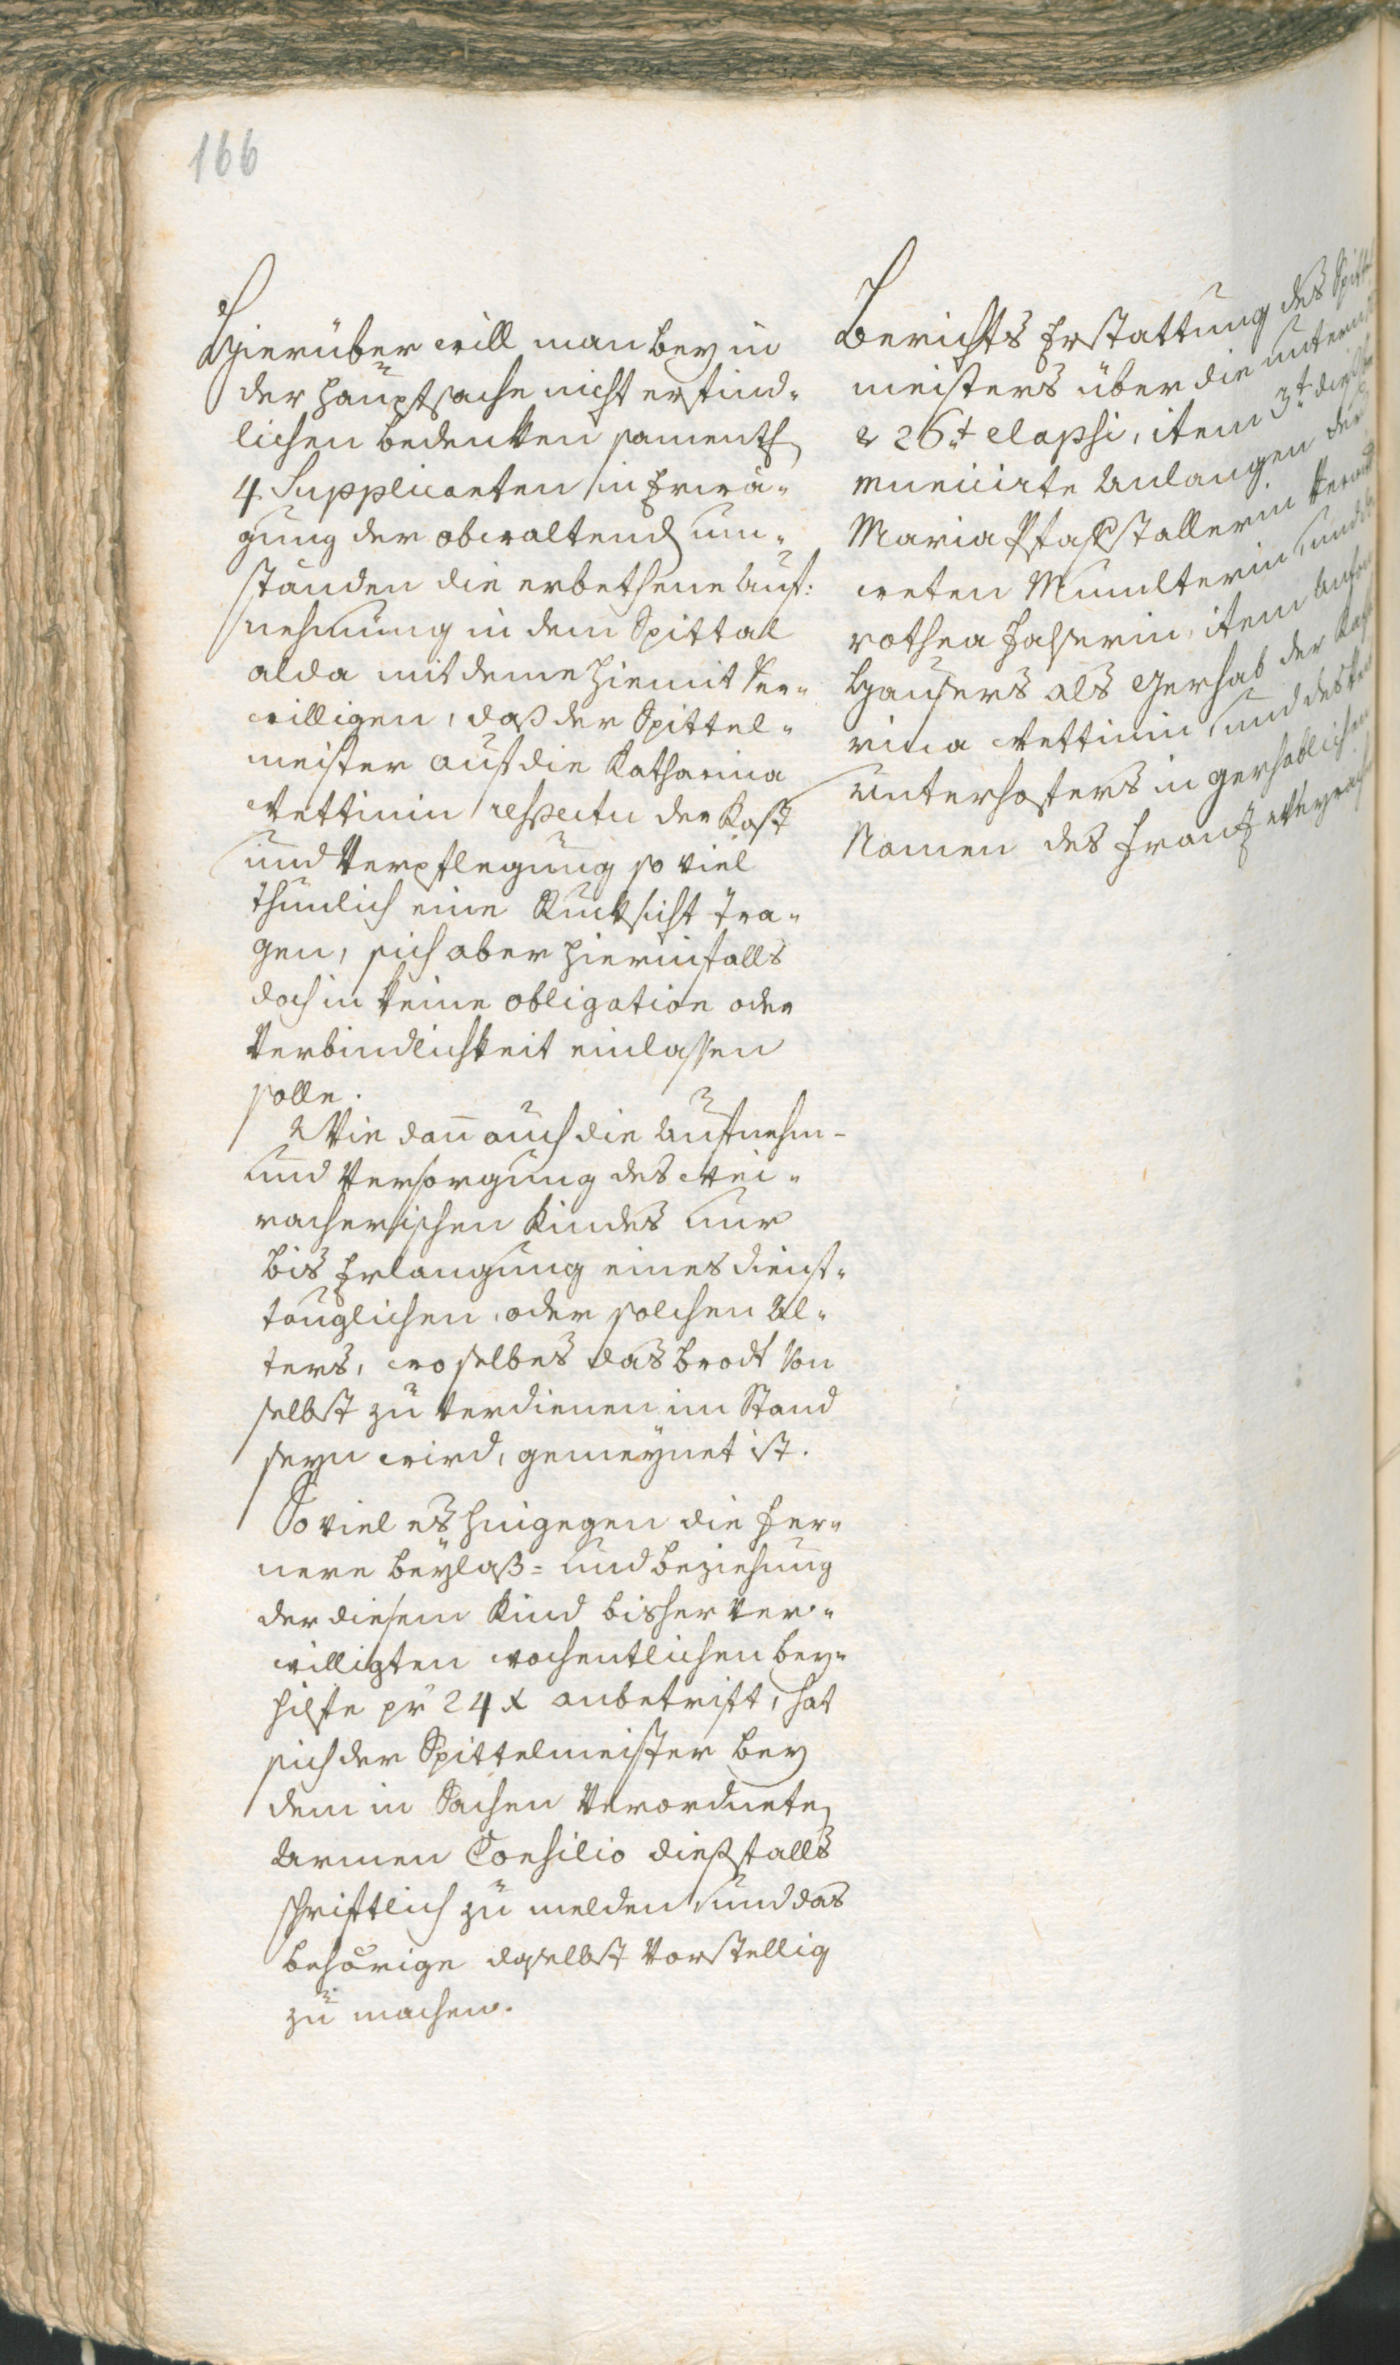 166
Hierüber will man bey in
der Hauptsache nicht erfind-
lichen Bedenken samentl
4 Supplicanten in Erwä-
gung der obwaltend um-
ständen die erbethene Auf-
nehmung in dem Spittal
alda mit deme hiemit Ver-
willigen, daß der Spittel-
meister auf die Katharina
Vettinin respectu der Kost
und Verpflegung so viel
thunlich eine Rucksicht tra-
gen, sich aber hierinfalls
doch in keine obligation oder
Verbindlichkeit einlassen
solle.
Wie dan auch die Aufnehm-
und Versorgung des Wei-
racherischen Kindes nur
bis Erlangung eines dienst-
tauglichen, oder solchen Al-
ters, wo selbes das brodt Von
selbst zu Verdienen im Stand
seyn wird, gemeynet ist.
So viel es hingegen die Fer-
nere beylaß- und beziehung
der diesem Kind bisher Ver-
willigten wochentlichen Bey-
hilfe pr 24 x anbetrift, hat
sich der Spittelmeister bey
dem in Sachen Verordnete
Armen Consilio dießfalls
schriftlich zu melden, und das
behörige daselbst Vorstellig
zu machen.
Berichts Erstattung des Spitt
meisters über die unterm
& 26t elapsi, item 3t
municirte Anlangen der
Maria Pfaffstallerin
weten Munlterin, und
rothea Fasserin, item
Hausers als Gerhab der
rina Vettinin, und des
Unterhofers in gerhablichen
Namen des Frantz